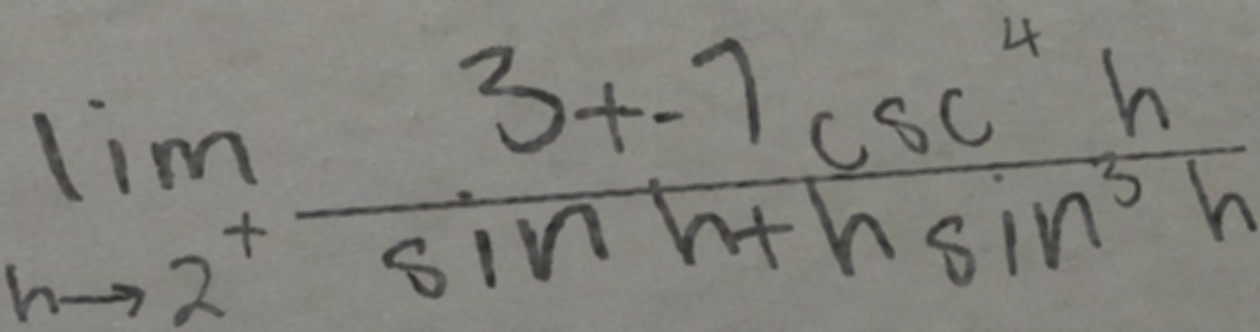 \lim_{h \to 2^+} \frac{3 + -7 \csc^4 h}{\sin h + h \sin^3 h}